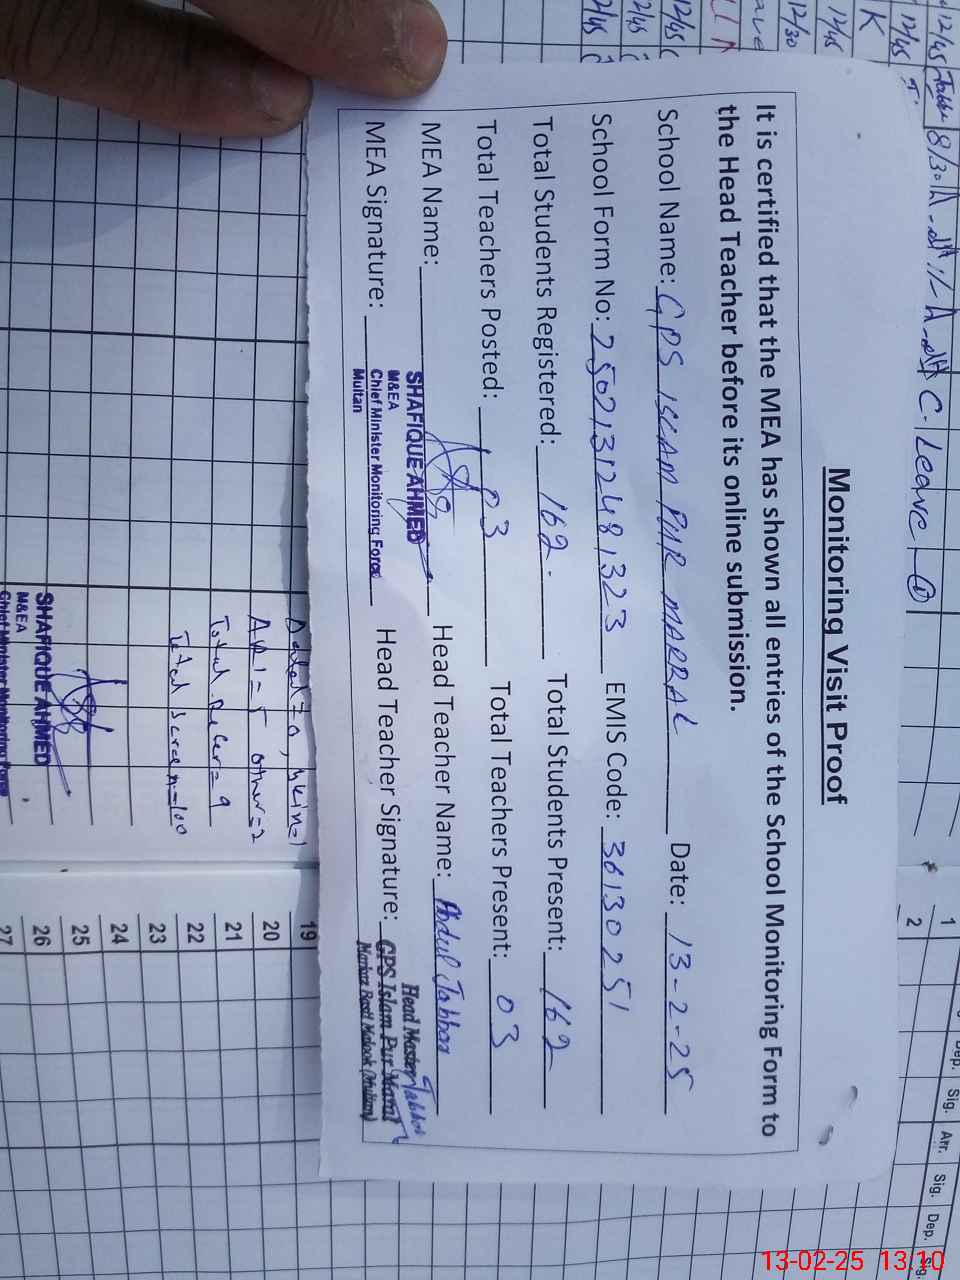 Monitoring Visit Proof
It is certified that the MEA has shown all entries of the School Monitoring Form to
the Head Teacher before its online submission.
School Name: GPS ISLAM PUR MARRAL Date: 13-2-25
School Form No: 25021312481323 EMIS Code: 36130251
Total Students Registered: 162 Total Students Present: 162
Total Teachers Posted: 03 Total Teachers Present: 03
MEA Name: SHAFIQUE AHMED Head Teacher Name: Abdul Jabbar
M&EA
MEA Signature: Chief Minister Monitoring Force Head Teacher Signature:
Multan
Head Master
GPS Islam Pur Maral
C. Leave 1
12/45
8/30
12/45
K
12/45
12/30
12/45
12/45
12/45
other = 2
Total = 9
Total Screen = 100
SHAFIQUE AHMED
M&EA
Chief Minister Monitoring Force
1
2
19
20
21
22
23
24
25
26
27
Dep. Sig. Arr. Sig. Dep. Sig.
13-02-25 13:10